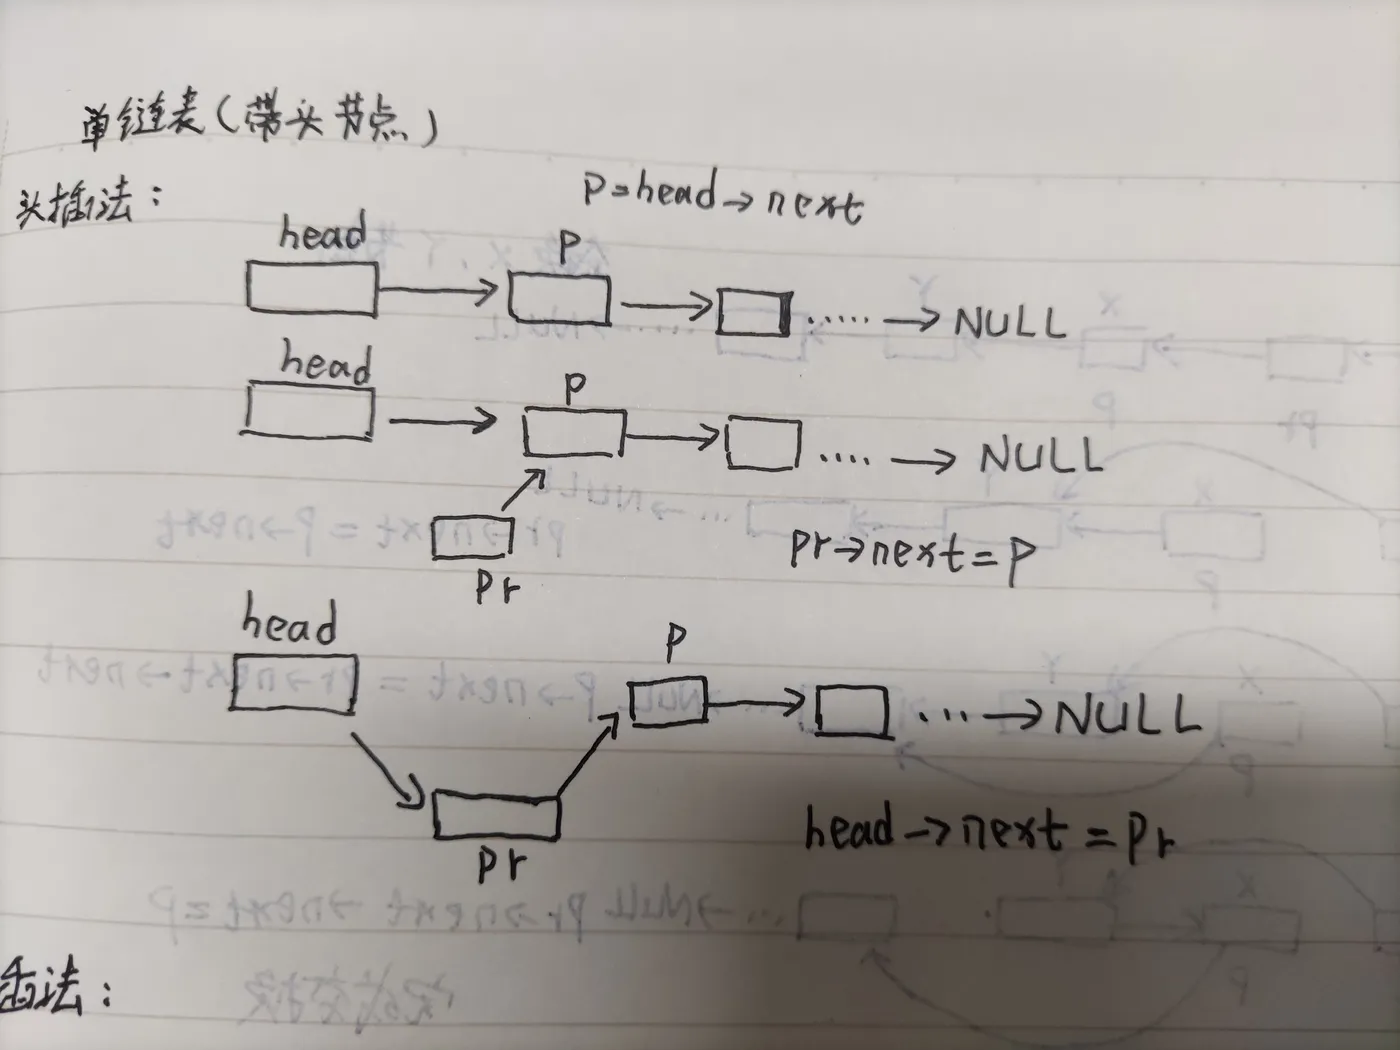 单链表(带头节点)
头插法:
p=head→next
head
p
NULL
head
p
NULL
pr
pr→next=p
head
p
NULL
pr
head→next=pr
插法: